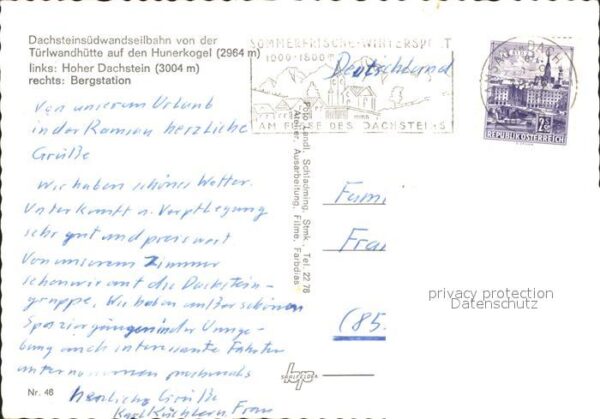 Dachsteinsüdwandseilbahn von der
Türlwandhütte auf den Hunerkogel (2964 m)
links: Hoher Dachstein (3004 m)
rechts: Bergstation
SOMMERFRISCHE-WINTERSPORT
1000-1800m
AM FUSSE DES DACHSTEINS
REPUBLIK ÖSTERREICH
Deutschland
Von unserem Urlaub
in der Ramsau herzliche
Grüße
Wir haben schönes Wetter.
Unterkunft u. Verpflegung
sehr gut und preiswert
Von unserem Zimmer
schauen wir auf die Dachstein-
gruppe. Wir haben außer schönen
Spaziergängen in der Umge-
bung auch interessante Fahrten
unternommen nochmals
herzliche Grüße
Karl
Frau
Foto Landl, Schladming, Stmk., Tel. 22 78
Atelier, Ausarbeitung, Filme, Farbdias
Fami
Frau
(85
privacy protection
Datenschutz
Nr. 46